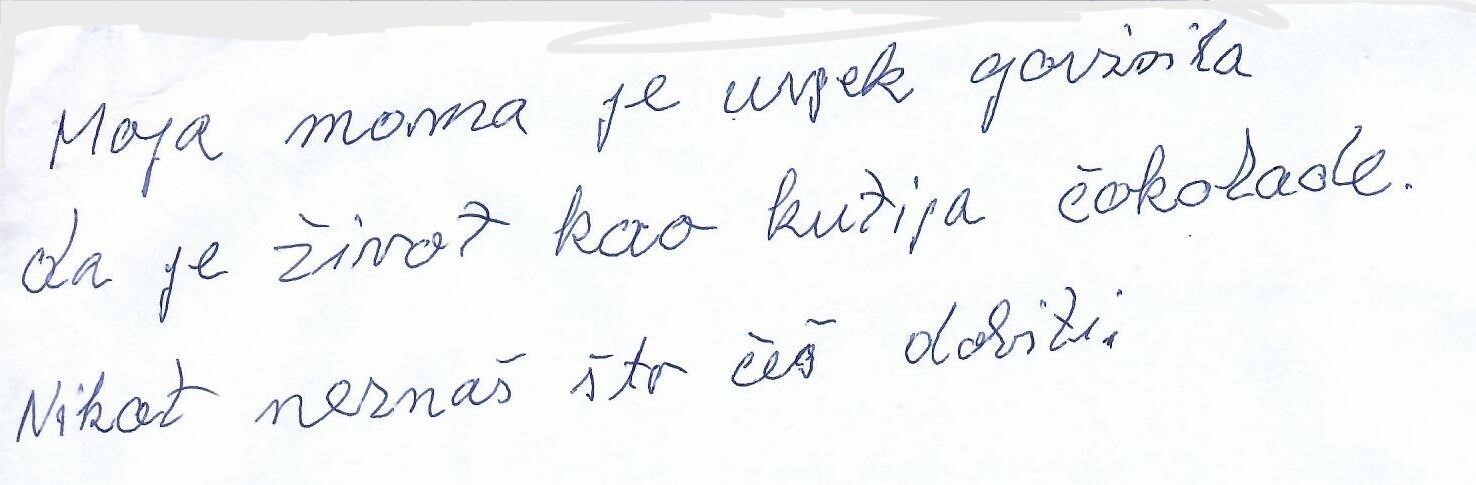 Moja moma je uvjek govorila
da je život kao kutija čokolade.
Nikat neznaš što češ dobiti.